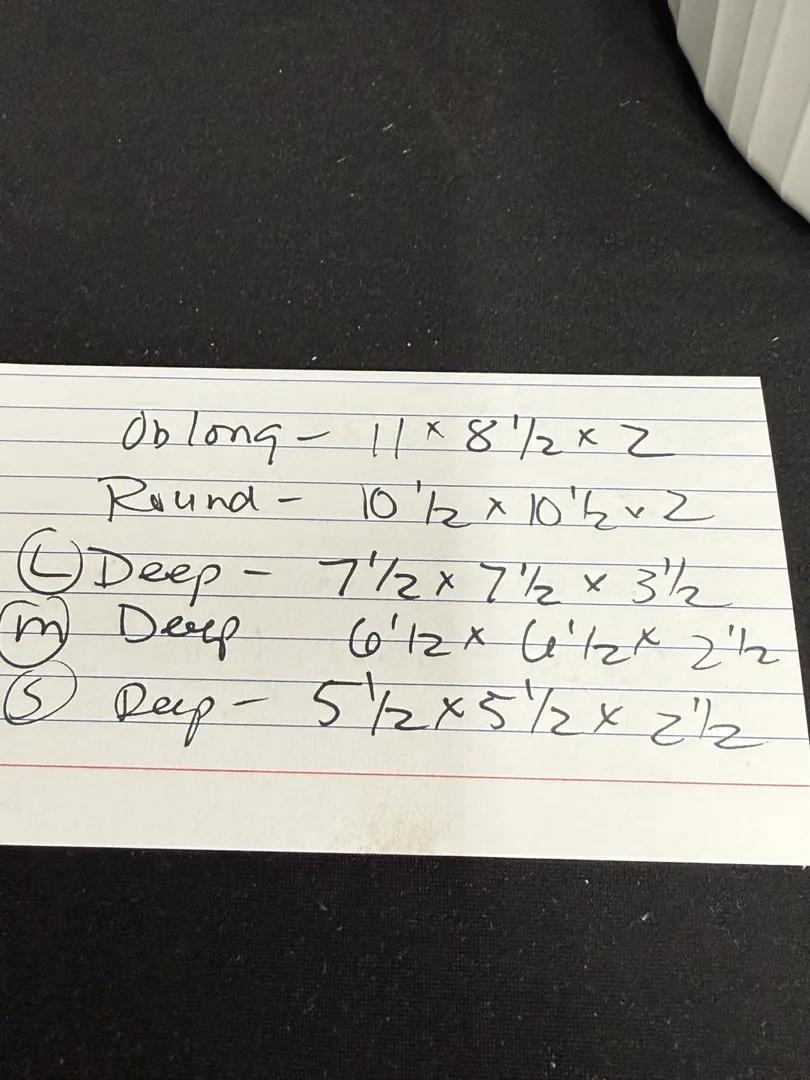 Oblong - 11 x 8 1/2 x 2
Round - 10 1/2 x 10 1/2 x 2
(L) Deep - 7 1/2 x 7 1/2 x 3 1/2
(m) Deep 6 1/2 x 6 1/2 x 2 1/2
(S) Deep - 5 1/2 x 5 1/2 x 2 1/2